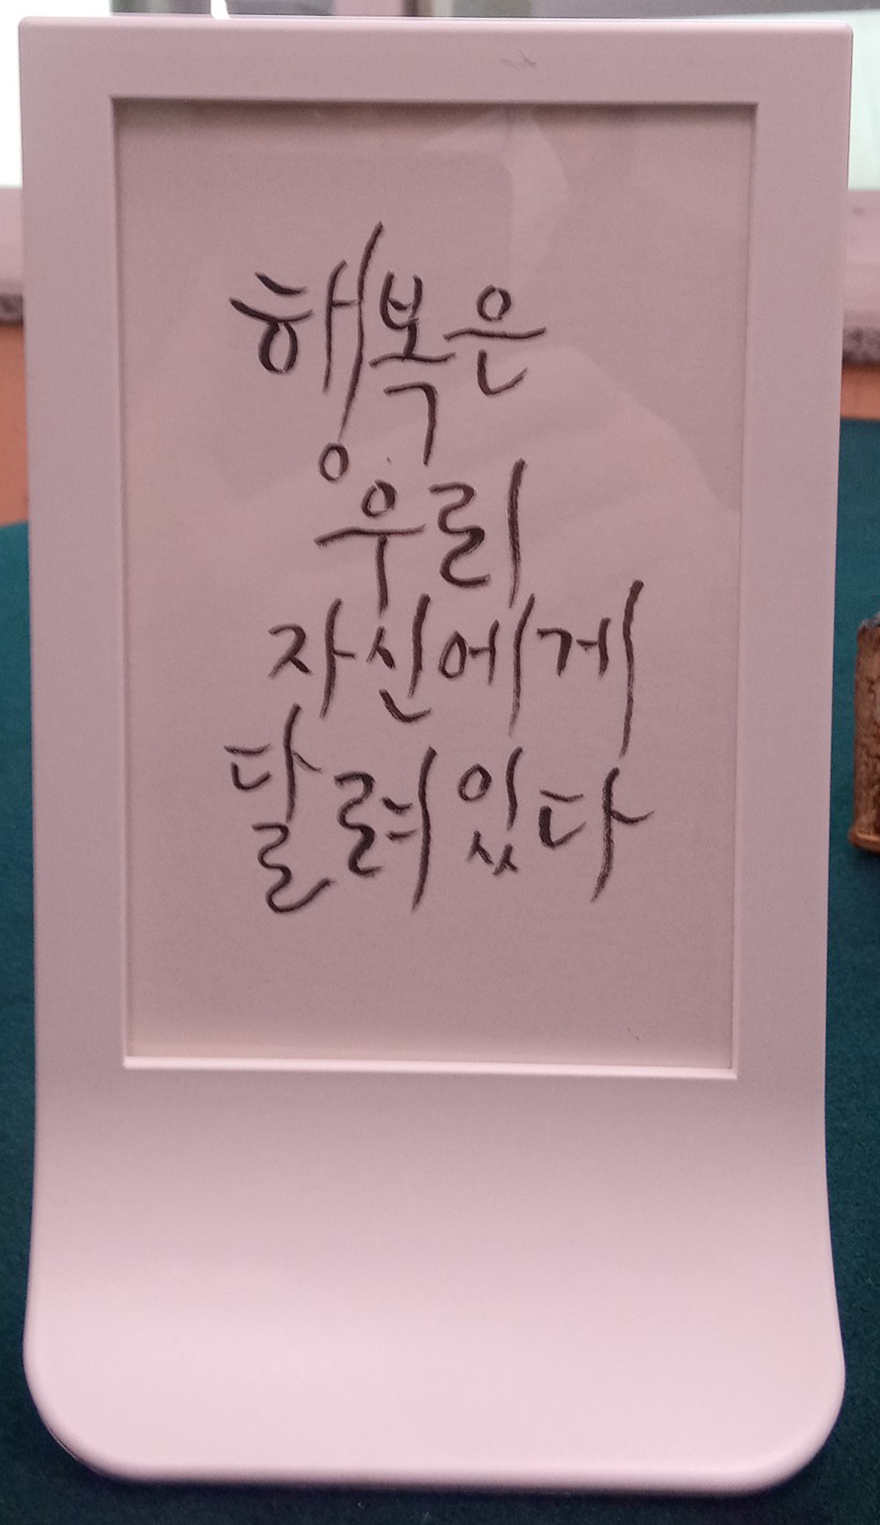 행복은
우리
자신에게
달려있다